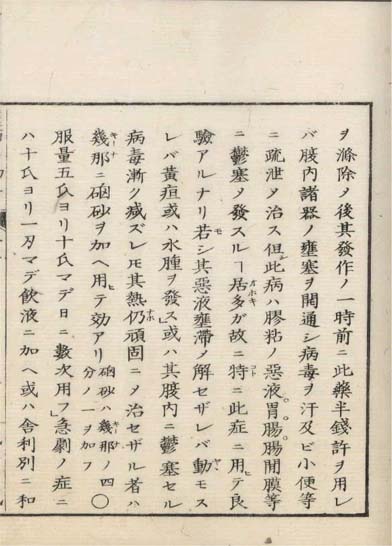 ヲ滌除メ後其發作ノ一時前ニ此藥半錢許ヲ用レ
バ腹内諸器ノ壅塞ヲ開通シ病毒ヲ汗及ビ小便等
ニ疏泄メ治ス但此病ハ膠粘ノ惡液。胃。腸。腸間膜等
ニ鬱塞メ發スルヿ居多ガ故ニ特ニ此症ニ用テ良
オホキ
コト
ヒ
驗アルナリ若シ其惡液壅滯メ解セザレバ動モス
モ
ヤヽ
レバ黄疸或ハ水腫ヲ發ス」或ハ其腹内ニ鬱塞セル
病毒漸ク減ズレ𪜈其熱仍頑固ニメ治セザル者ハ
ホ
幾那ニ硇砂ヲ加ヘ用テ効アリ 硇砂ハ幾那ノ四分ノ一ヲ加フ ○
キーナ
ヒ
キーナ
服量五氏ヨリ十氏マデ日ニ數次用フ」急劇ノ症ニ
ハ十氏ヨリ一刄マデ飲液ニ加ヘ或ハ舎利別ニ和